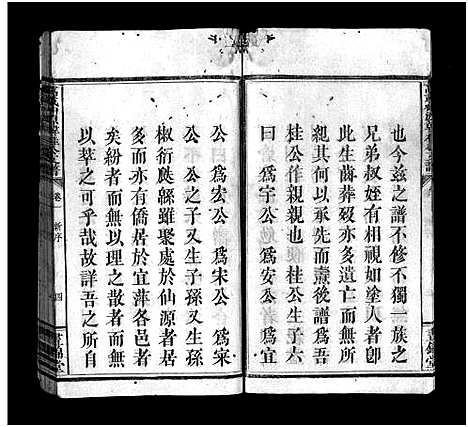 也今茲之譜不修不獨一族之
兄弟叔姪有相視如塗人者卽
此生齒葬歿亦多遺亡而無所
親其何以承先而燾後譜爲吾
桂公作親親也桂公生子六
曰爲宇公爲安公爲宜
公曰爲宏公爲宋公爲寀
公公之子又生子孫又生孫
椒衍瓞緜雖聚處於仙源者居
多而亦有僑居於宜萍各邑者
矣紛者而無以理之散者而無
以萃之可乎哉故詳吾之所自
卷一 新序
四